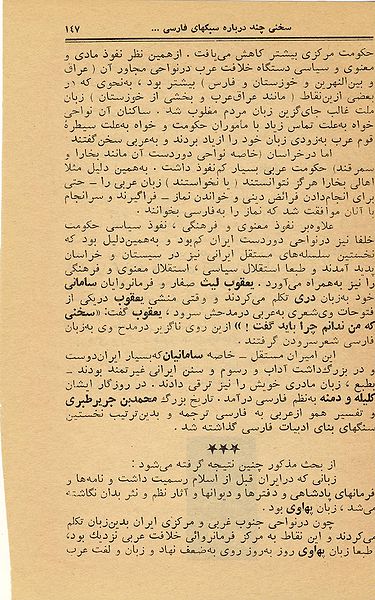 سخنی چند درباره سبکهای فارسی ... ۱۴۷
حکومت مرکزی بیشتر کاهش می‌یافت . ازهمین نظر نفوذ مادی و
معنوی و سیاسی دستگاه خلافت عرب درنواحی مجاور آن ( عراق
و بین النهرین و خوزستان و فارس ) بیشتر بود ، به‌نحوی که در
بعضی ازین‌نقاط ( مانند عراق‌عرب و بخشی از خوزستان ) زبان
ملت غالب جای‌گزین زبان مردم مغلوب شد . ساکنان آن نواحی
خواه به‌علت تماس زیاد با ماموران حکومت و خواه به‌علت سیطرهٔ
قوم عرب به‌زودی زبان خود را ازیاد بردند و به‌عربی سخن گفتند
اما درخراسان (خاصه نواحی دوردست آن مانند بخارا و
سمرقند) حکومت عربی بسیار کم‌نفوذ داشت . به‌همین دلیل مثلا
اهالی بخارا هرگز نتوانستند ( یا نخواستند ) زبان عربی را ـ حتی
برای انجام‌دادن فرائض دینی و خواندن نماز ـ فراگیرند و سرانجام
با آنان موافقت شد که نماز را به‌فارسی بخوانند .
علاوه‌بر نفوذ معنوی و فرهنگی ، نفوذ سیاسی حکومت
خلفا نیز درنواحی دوردست ایران کم‌بود و به‌همین‌دلیل بود که
نخستین سلسله‌های مستقل ایرانی نیز در سیستان و خراسان
پدید آمدند و طبعا استقلال سیاسی ، استقلال معنوی و فرهنگی
را نیز به‌همراه می‌آورد . یعقوب لیث صفار و فرمانروایان سامانی
خود به‌زبان دری تکلم می‌کردند و وقتی منشی یعقوب دریکی از
فتوحات وی‌شعری به‌عربی درمدحش سرود ، یعقوب گفت: «سخنی
که من ندانم چرا باید گفت ! » ازین روی ناگزیر درمدح وی به‌زبان
فارسی شعرسرودن گرفتند .
این امیران مستقل ـ خاصه سامانیان که‌بسیار ایران‌دوست
و در بزرگداشت آداب و رسوم و سنن ایرانی غیرتمند بودند ـ
بطبع ، زبان مادری خویش را نیز ترقی دادند . در روزگار ایشان
کلیله و دمنه به‌نظم فارسی درآمد . تاریخ بزرگ محمدبن جریرطبری
و تفسیر همو ازعربی به فارسی ترجمه و بدین‌ترتیب نخستین
سنگهای بنای ادبیات فارسی گذاشته شد .
★★★
از بحث مذکور چنین نتیجه گرفته می‌شود :
زبانی که درایران قبل از اسلام رسمیت داشت و نامه‌ها و
فرمانهای پادشاهی و دفترها و دیوانها و آثار نظم و نثر بدان نگاشته
می‌شد ، زبان پهلوی بود .
چون درنواحی جنوب غربی و مرکزی ایران بدین‌زبان تکلم
می‌کردند و این نقاط به مرکز فرمانروائی خلافت عربی نزدیک بود،
طبعا زبان پهلوی روز به‌روز روی به‌ضعف نهاد و زبان و لغت عرب